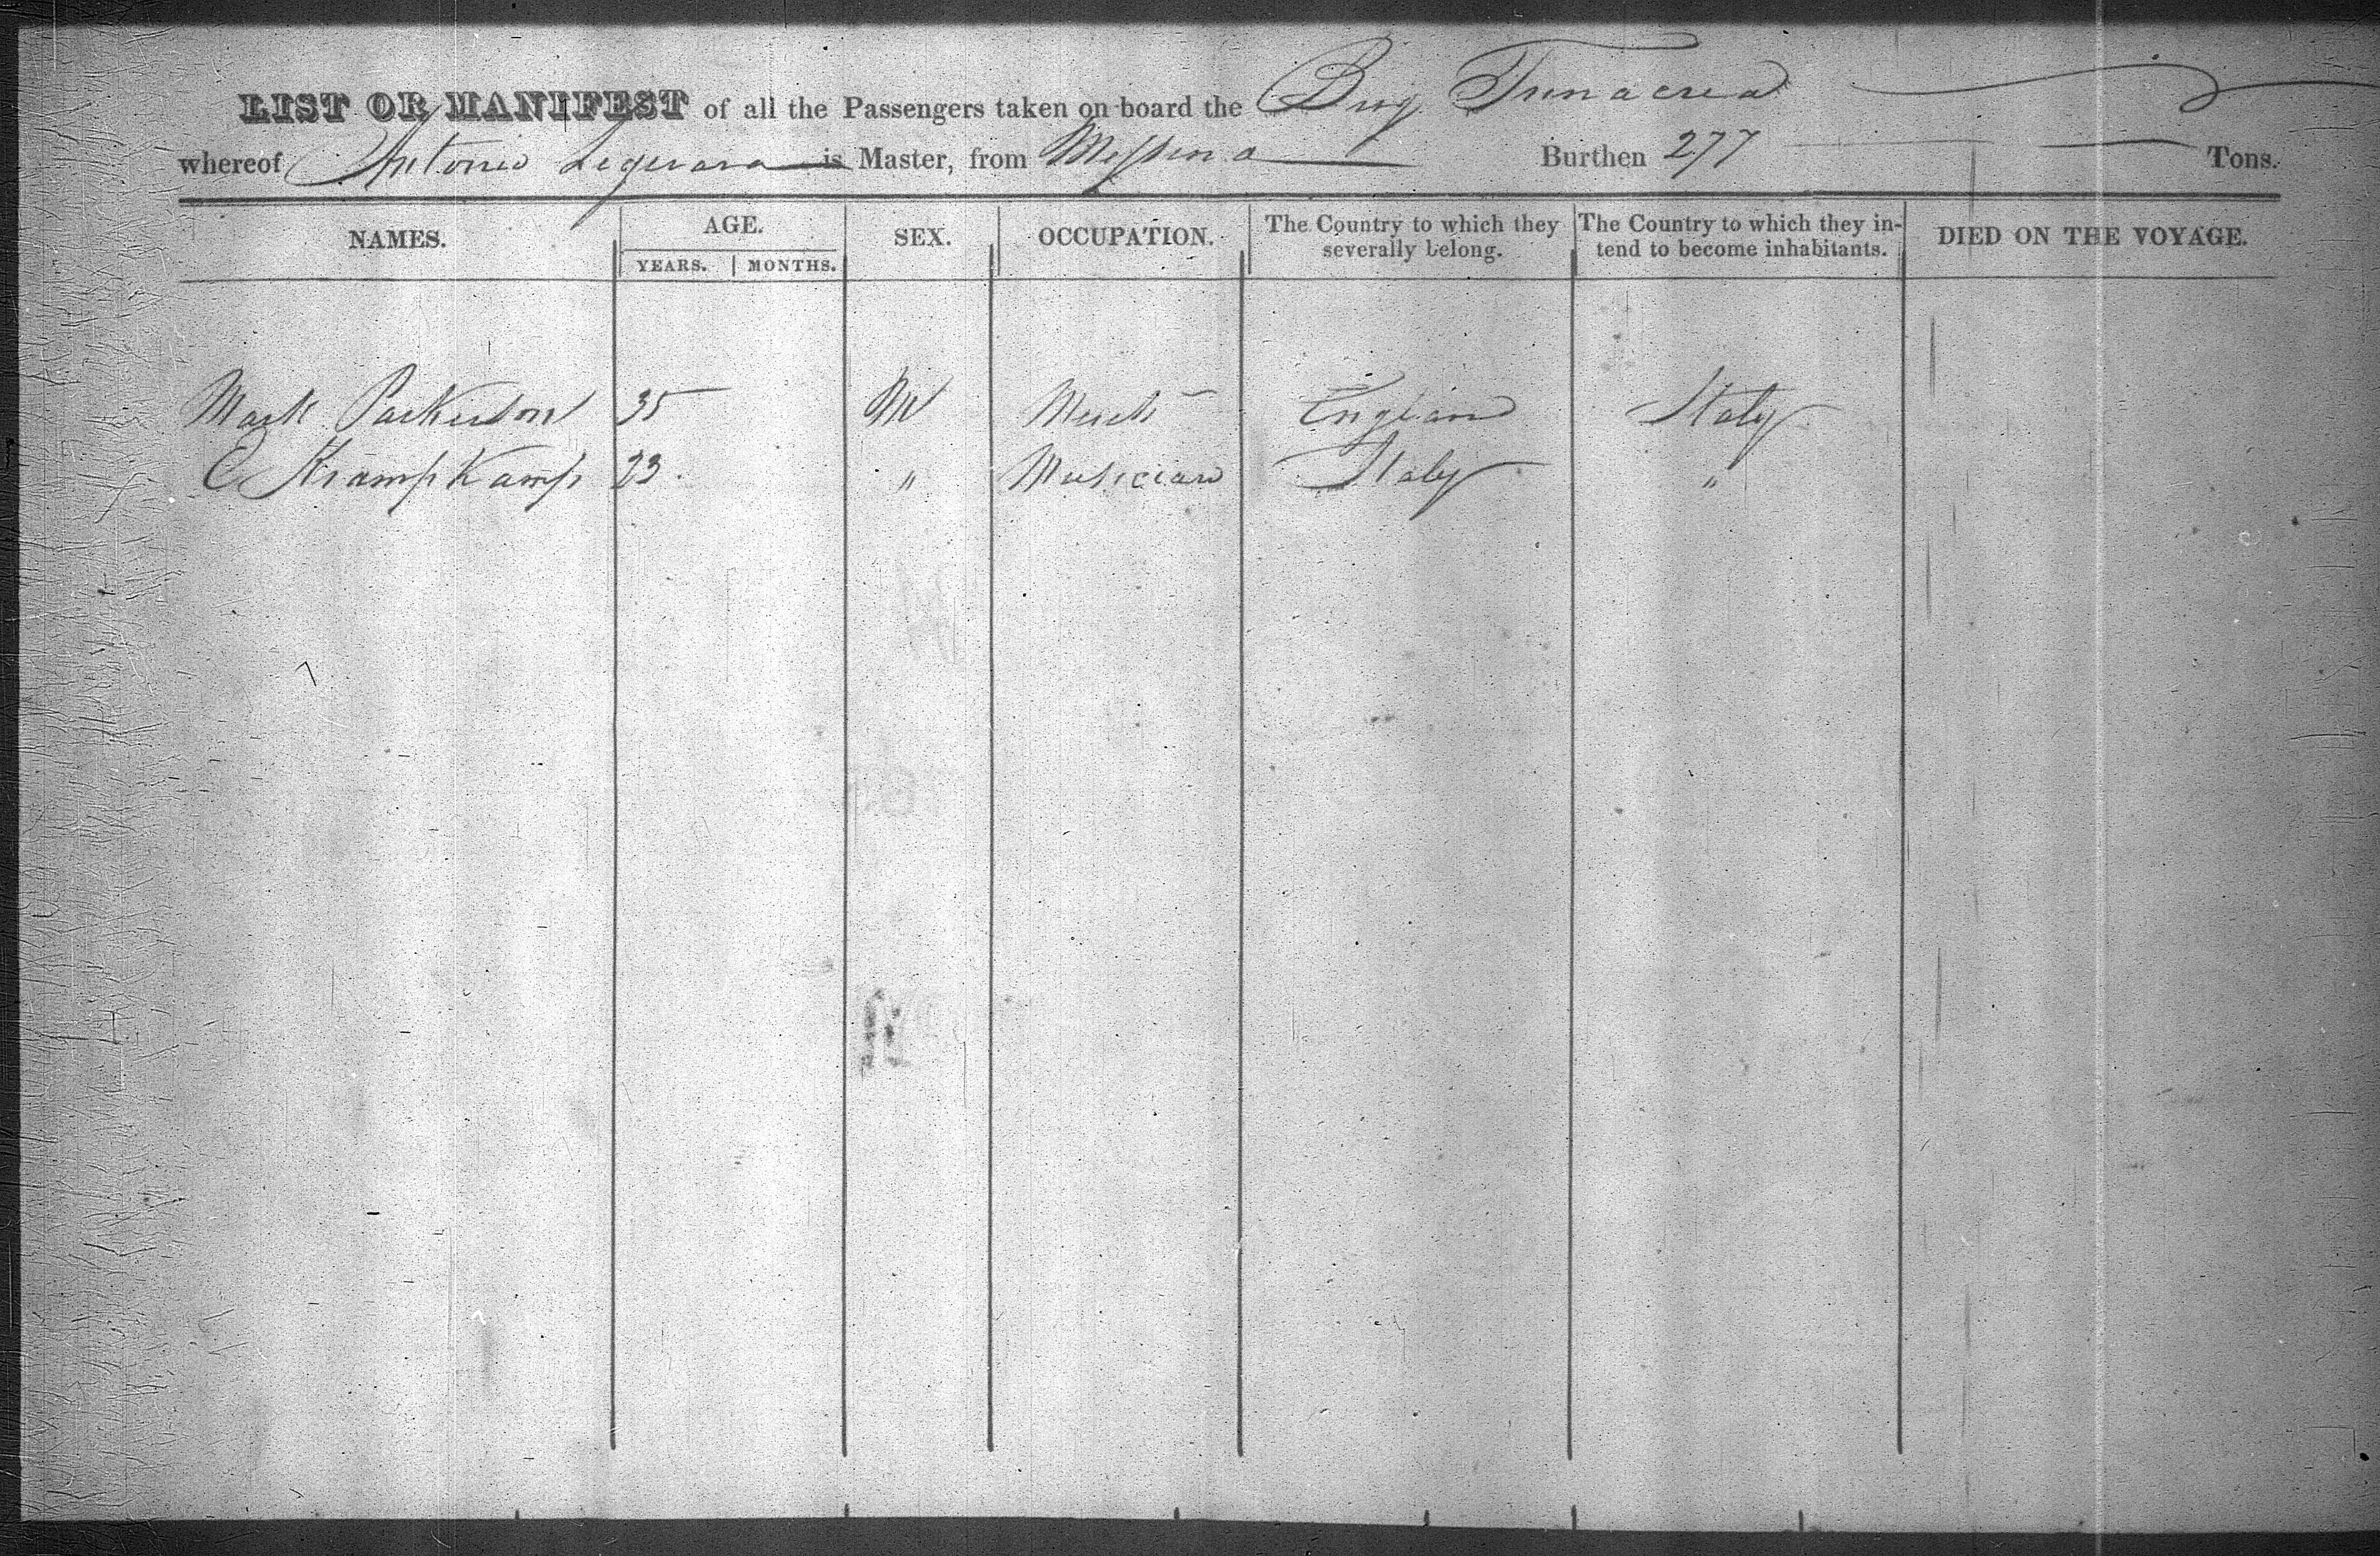 LIST OR MANIFEST of all the Passengers taken on board the Brig Trinacria
whereof Antonio is Master, from Messina Burthen 277 Tons.
NAMES. AGE. SEX. OCCUPATION. The Country to which they severally belong. The Country to which they intend to become inhabitants. DIED ON THE VOYAGE.
YEARS. MONTHS.
Mark 35 M Mercht England Italy
C KrampKamp 23. " Musician Italy "